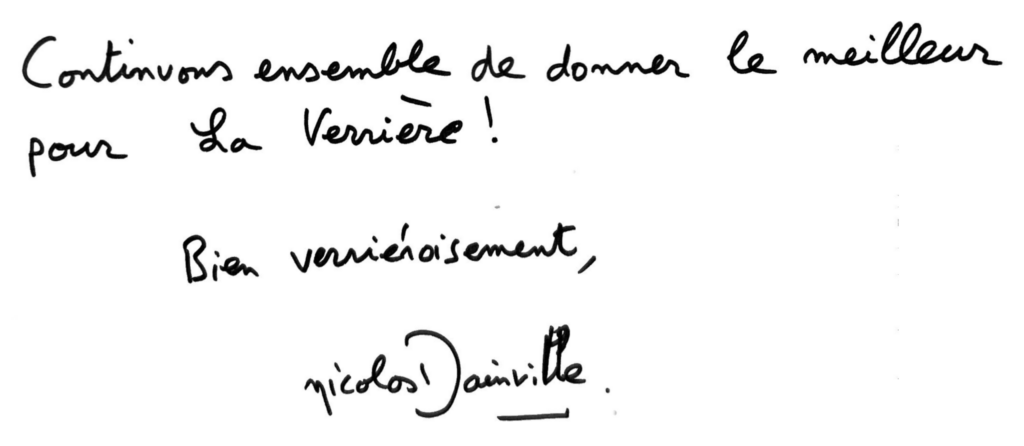 Continuons ensemble de donner le meilleur
pour La Verrière !
Bien verriéroisement,
nicolas Dainville.